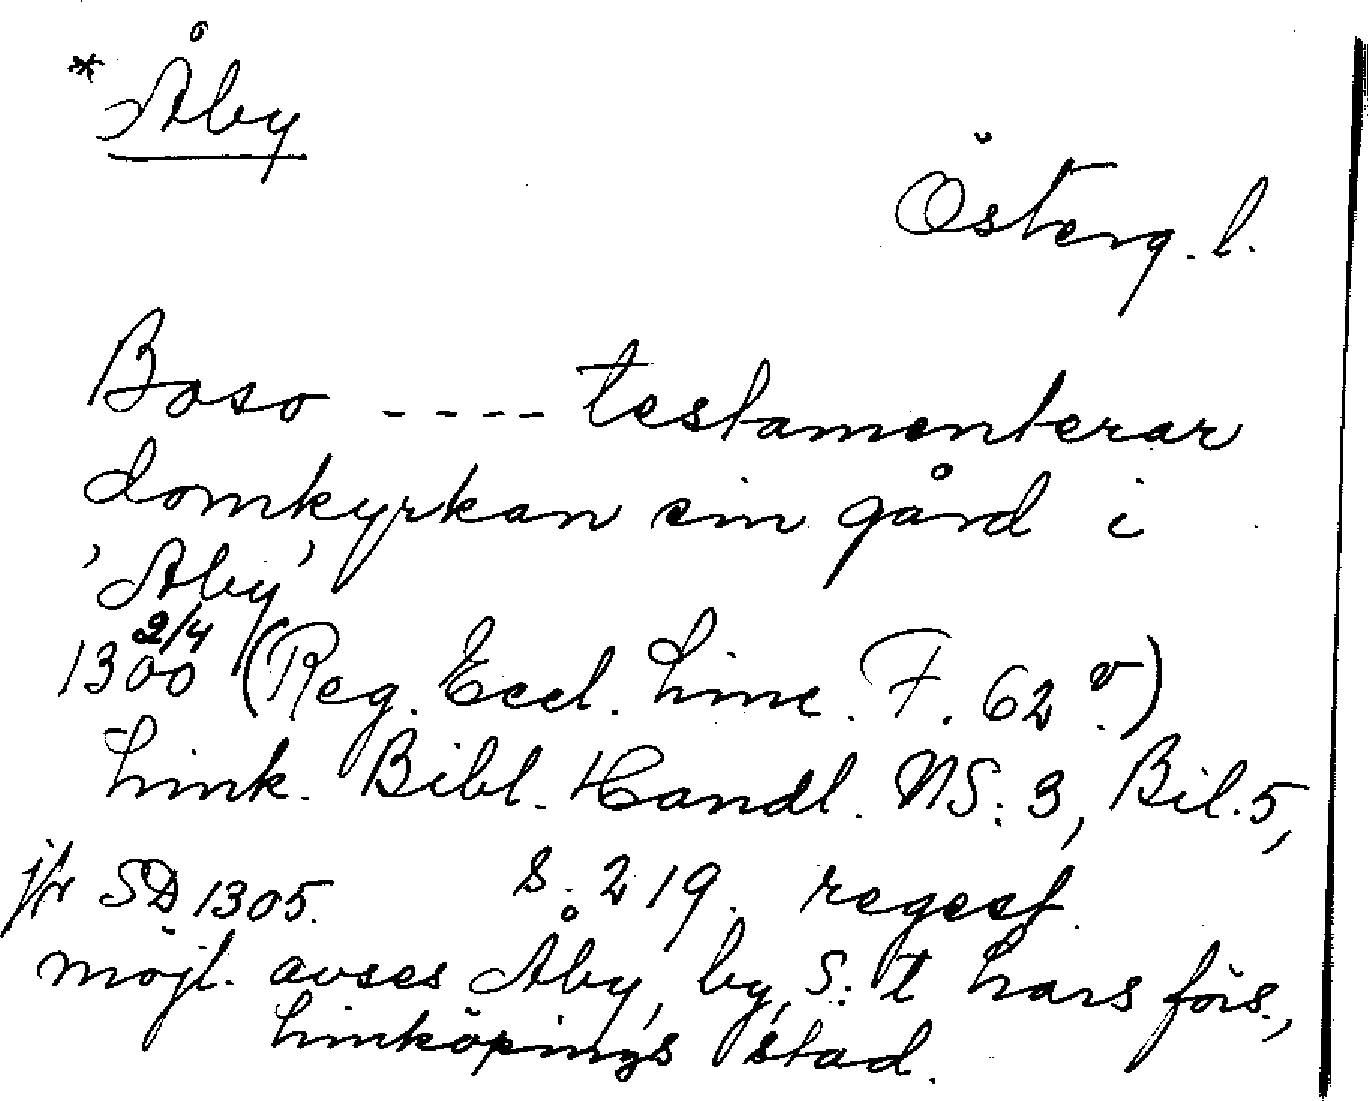 * Åby
Österg. l.
Boso ---- testamenterar
domkyrkan sin gård i
'Aby'
1300 2/4 (Reg. Eccl. Linc. F. 62 v.)
Link. Bibl. Handl. NS: 3, Bil. 5,
jfr SD 1305. s. 219. regest.
möjl. avses Åby, by, S:t Lars förs.,
Linköpings stad.